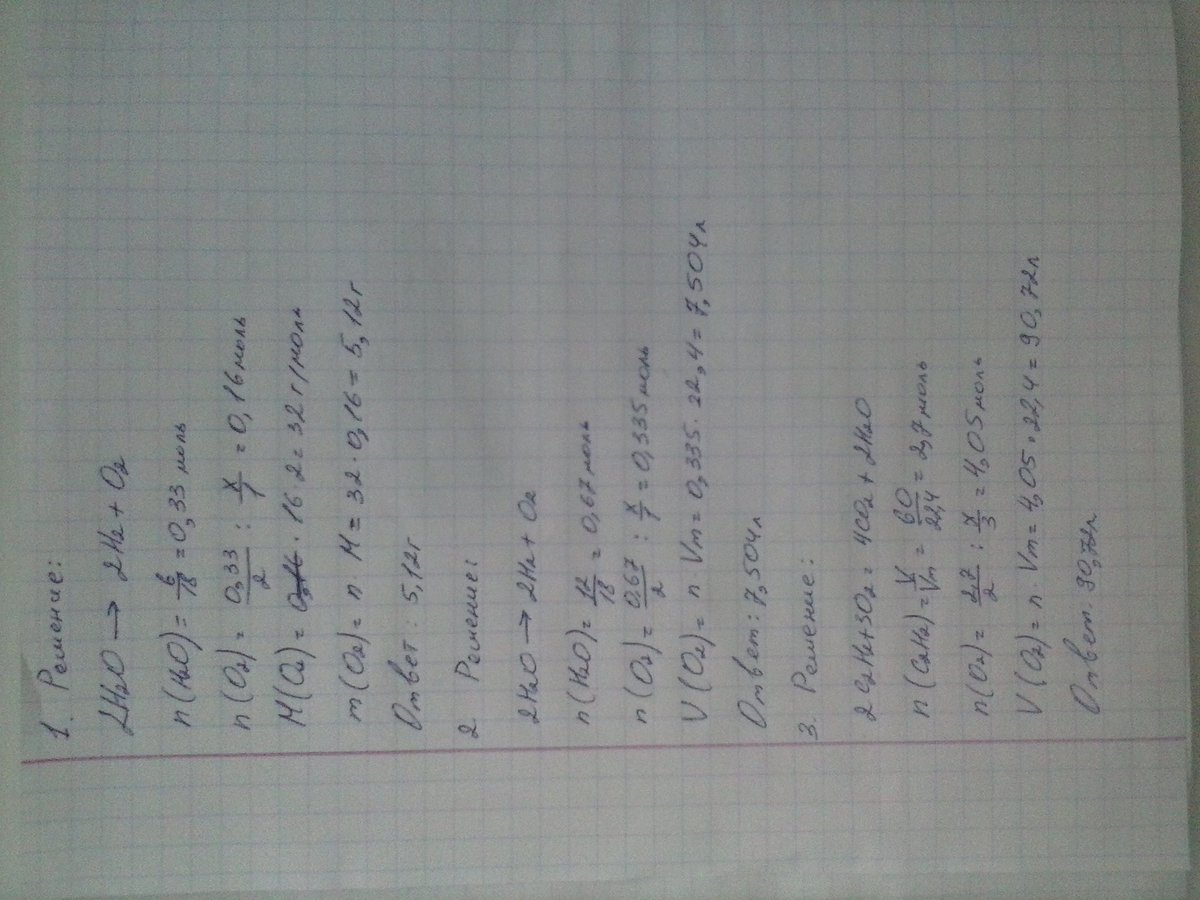 1. Решение:
2H₂O → 2H₂ + O₂
n(H₂O) = 6/18 = 0,33 моль
n(O₂) = 0,33/2 : x/1 = 0,16 моль
M(O₂) = 16·2 = 32 г/моль
m(O₂) = n·M = 32·0,16 = 5,12 г
Ответ: 5,12 г
2. Решение:
2H₂O → 2H₂ + O₂
n(H₂O) = 12/18 = 0,67 моль
n(O₂) = 0,67/2 : x/1 = 0,335 моль
V(O₂) = n Vm = 0,335·22,4 = 7,504 л
Ответ: 7,504 л
3. Решение:
2C₂H₂ + 5O₂ = 4CO₂ + 2H₂O
n(C₂H₂) = V/Vm = 60/22,4 = 2,7 моль
n(O₂) = 2,7/2 : x/3 = 4,05 моль
V(O₂) = n Vm = 4,05·22,4 = 90,72 л
Ответ. 90,72 л